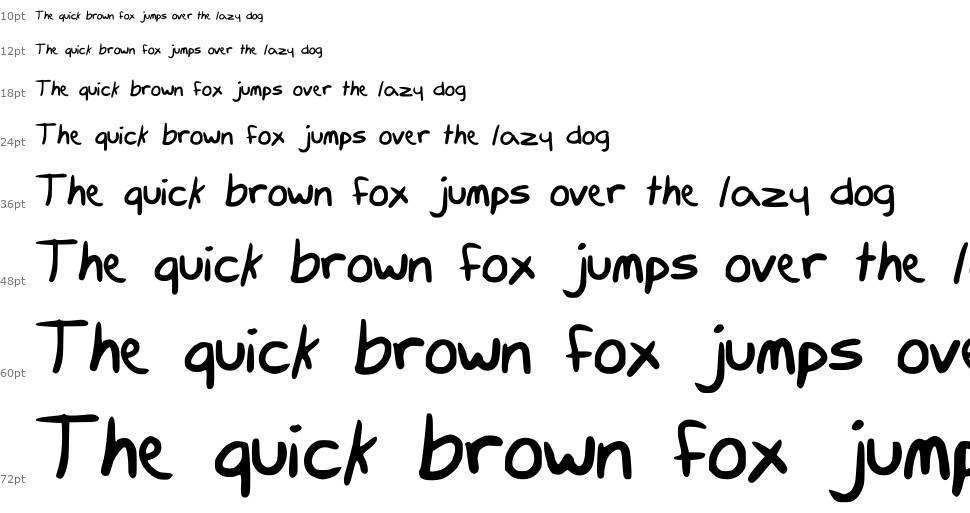 10pt The quick brown fox jumps over the lazy dog
12pt The quick brown fox jumps over the lazy dog
18pt The quick brown fox jumps over the lazy dog
24pt The quick brown fox jumps over the lazy dog
36pt The quick brown fox jumps over the lazy dog
48pt The quick brown fox jumps over the l
60pt The quick brown fox jumps ove
72pt The quick brown fox jump